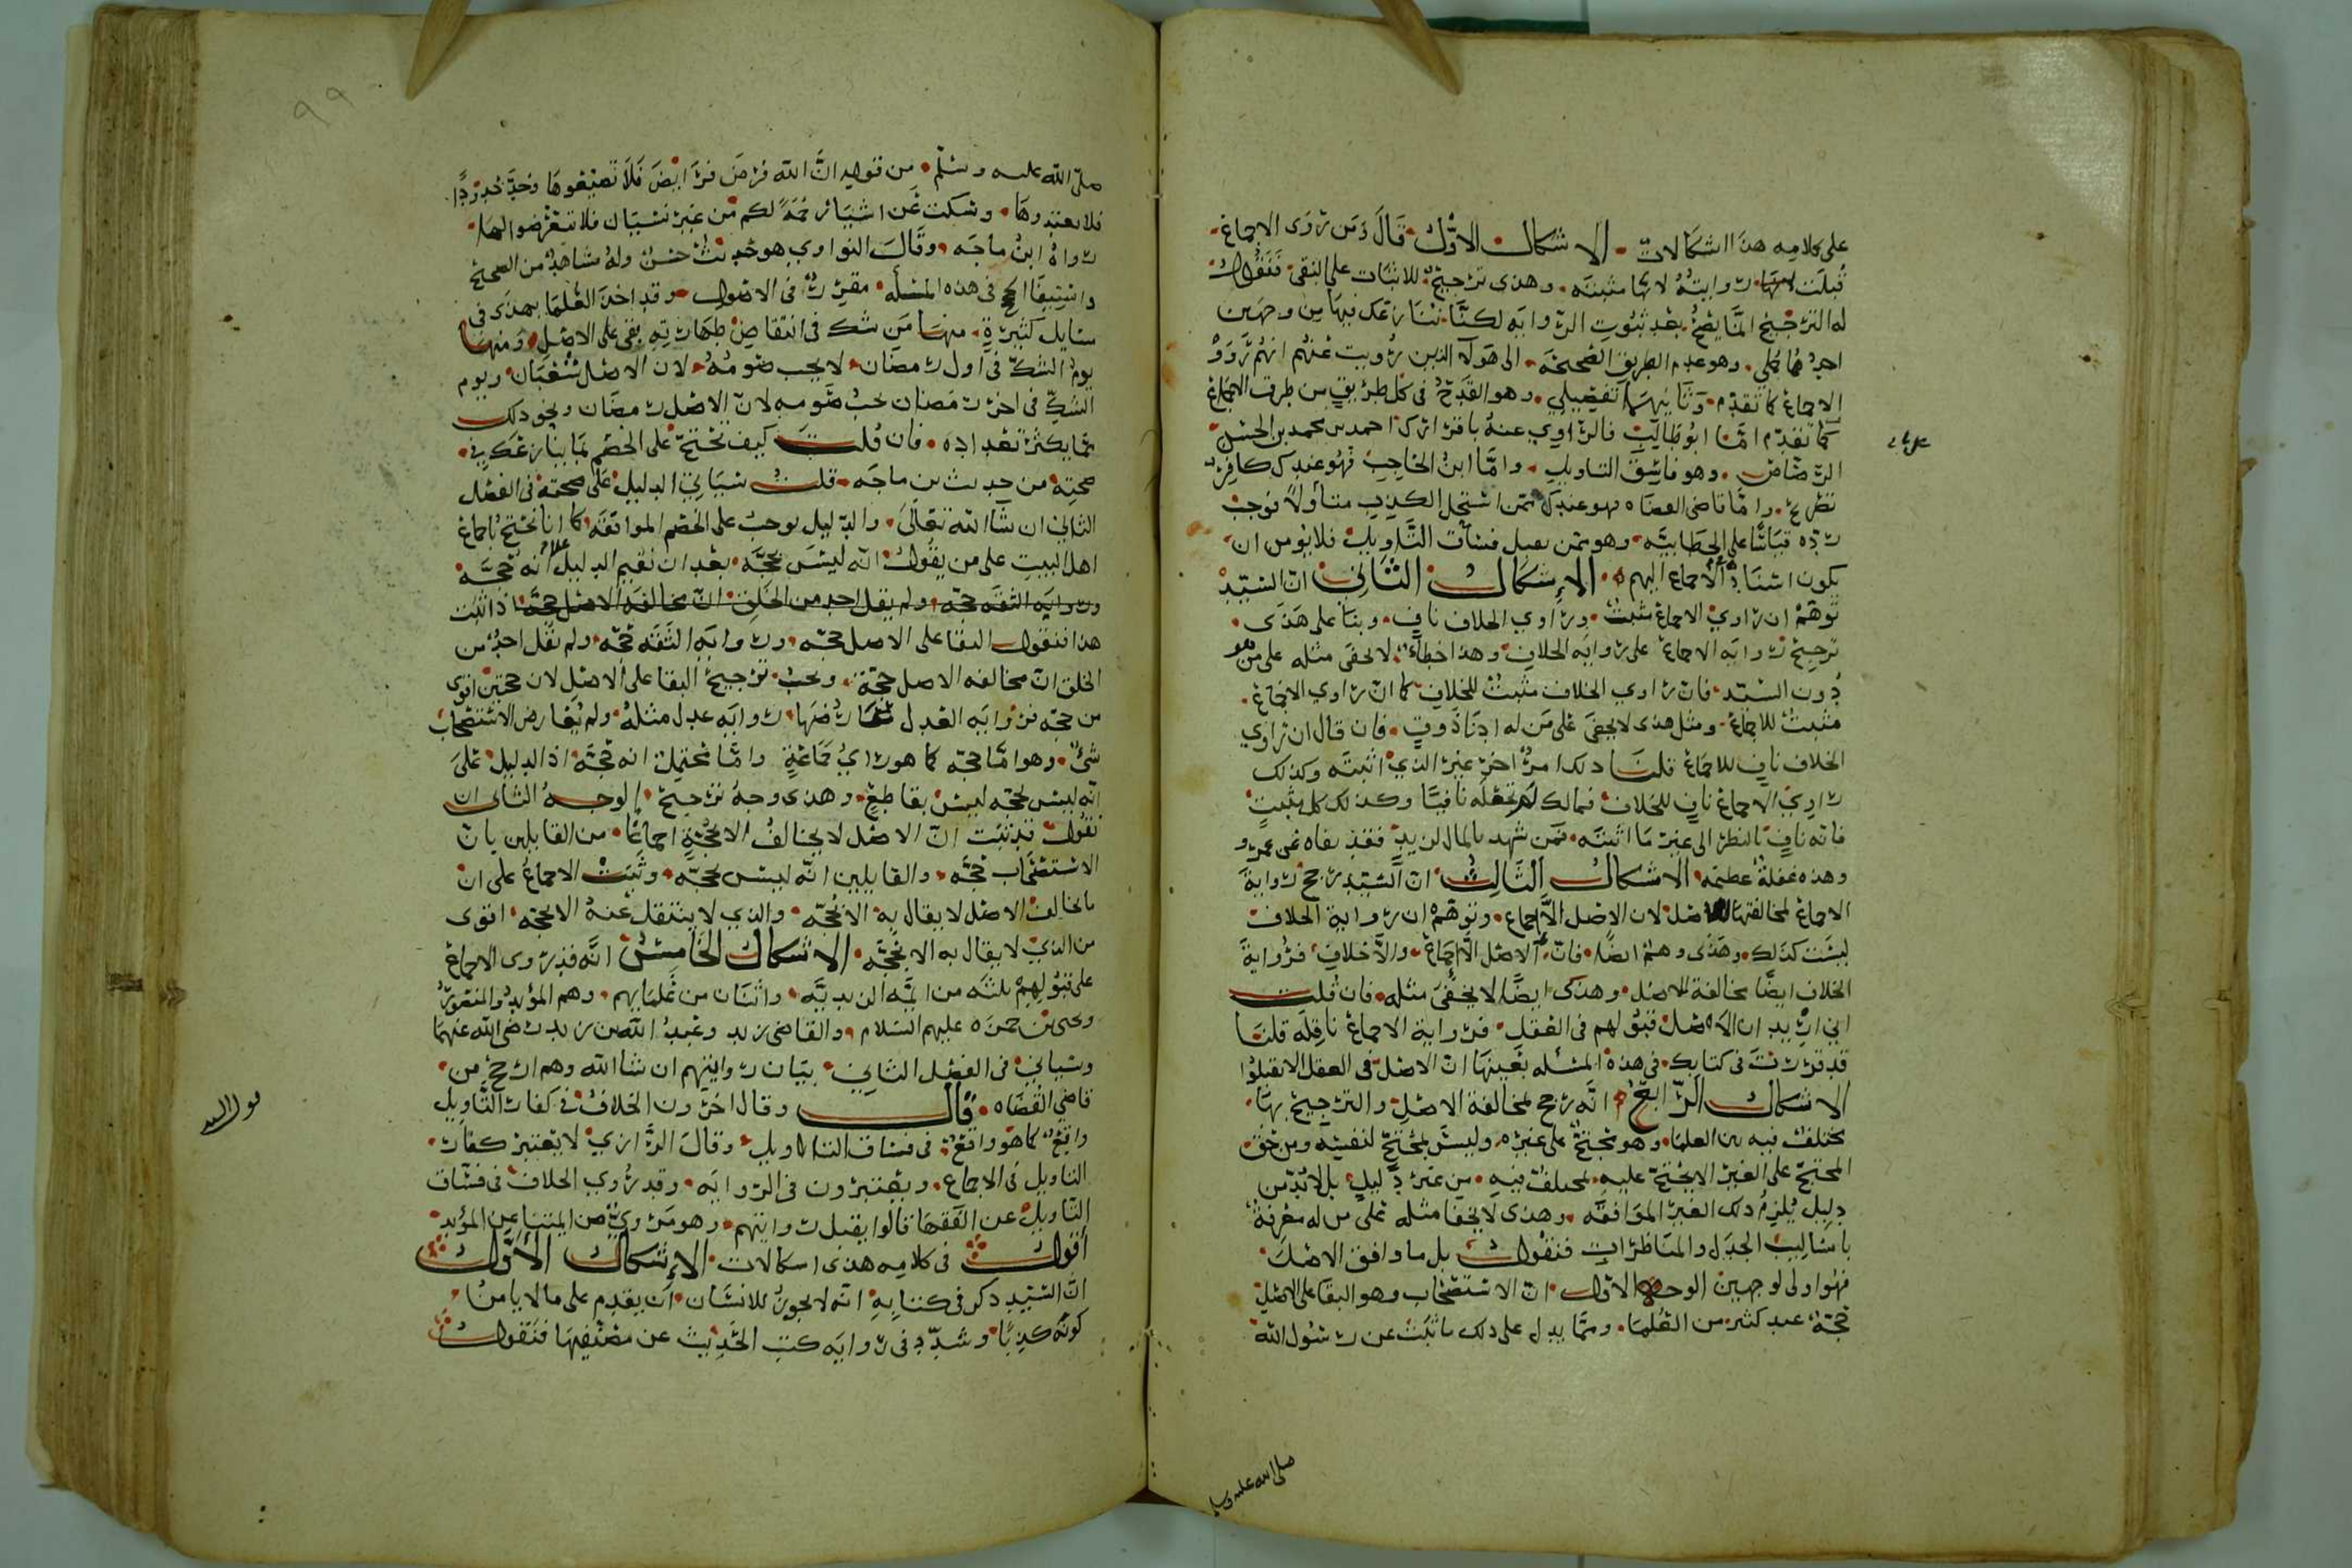 على كلامه هذا اشكالات الاشكال الاول قال ومن روى الاجماع
قبلت روايته لانها مثبته وهذى ترجيح للاثبات على النفي فنقول
له الترجيح انما يصح بعد ثبوت الروايه لكنا ننازعك فيها من وجهين
احدهما جملي وهو عدم الطريق الصحيحه الى هولآ الذين رويت عنهم انهم رووا
الاجماع كما تقدم وثانيهما تفصيلي وهو القدح في كل طريق من طرف الاجماع
كما تقدم امّا ابو طالب فالراوي عنه باقرارك احمد بن محمد بن الحسن
الرصاص وهو فاسق التاويل واما ابن الحاجب فهو عندك كافر
تصريح واما قاضي القضاه فهو عندك ممن استحل الكذب متأولا فوجب
رده قياسًا على الخطابيه وهو ممن يقبل فساق التاويل فلا يومن ان
يكون اسناد الاجماع اليهم الاشكال الثاني ان السيد
توهم ان راوي الاجماع مثبت وراوي الخلاف ناف وبنا على هذى
ترجيح روايه الاجماع على روايه الخلاف وهذا خطأ لا يخفى مثله على من هو
دون السيد فان راوي الخلاف مثبت للخلاف كما ان راوي الاجماع
مثبت للاجماع ومثل هذى لا يخفى على من له ادنا ذوق فان قال ان راوي
الخلاف ناف للاجماع قلنا ذلك امر اخر غير الذي اثبته وكذلك
راوي الاجماع ناف للخلاف فمالك لم تجعله نافيا وكذلك كل مثبت
فانه ناف بالنظر الى غير ما اثبته فمن شهد بالمال لزيد فقد نفاه عن عمرو
وهذه غفله عظيمه الاشكال الثالث ان السيد رجح رواية
الاجماع لمخالفتها الاصل لان الاصل الا اجماع وتوهم ان رواية الخلاف
ليست كذلك وهذى وهم ايضا فان الاصل الا اجماع والا خلاف فرواية
الخلاف ايضًا مخالفة للاصل وهذى ايضًا لا يخفى مثله فان قلت
اني اريد ان الاصل قبولهم في العقل فرواية الاجماع ناقلة قلنا
قد قررت في كتابك في هذه المسئله بعينها ان الاصل في العقل الا يقبلوا
الاشكال الرابع انه رجح لمخالفة الاصل والترجيح بها
مختلف فيه بين العلما وهو محتج على غيره وليس بمحتج لنفسه ومن حق
المحتج على الغير الا يحتج عليه بمختلف فيه من غير دليل بل لا بد من
دليل يلزم ذلك الغير الموافقه وهذى لا يخفا مثله على من له معرفة
باساليب الجدل والمناظرات فنقول بل ما وافق الاصل
فهو اولى لوجهين الوجه الاول ان الاستصحاب وهو البقا على الاصل
حجة عند كثير من العلما ومما يدل على ذلك ما ثبت عن رسول الله
صلى الله عليه وسلم
٩٩
صلى الله عليه وسلم من قوله ان الله فرض فرايض فلا تضيعوها وحد حدودًا
فلا تعتدوها وسكت عن اشياء رحمةً لكم من غير نسيان فلا تتعرضوا لها
رواه ابن ماجه وقال النواوي هو حديث حسن وله شاهد من الصحيح
واستيفا الحجج في هذه المسئله مقرر في الاصول وقد اخذ العلما بهذى في
مسايل كثيرة منها من شك في انتقاض طهارته بقي على الاصل ومنها
يوم الشك في اول رمضان لا يجب صومه لان الاصل شعبان ويوم
الشك في اخر رمضان يجب صومه لان الاصل رمضان ونحو ذلك
مما يكثر تعداده فان قلت كيف تحتج على الخصم بما ينازعك في
صحته من حديث بن ماجه قلت سياتي الدليل على صحته في الفصل
الثاني ان شآ الله تعالى والدليل يوجب على الخصم الموافقه كما انا نحتج باجماع
اهل البيت على من يقول انه ليس بحجه بعد ان نقيم الدليل على انه حجه
وروايه الثقه حجه ولم يقل احد من الخلق ان مخالفه الاصل حجه اذا ثبت
هذا فنقول البقا على الاصل حجه وروايه الثقه حجه ولم يقل احد من
الخلق ان مخالفه الاصل حجة ويجب ترجيح البقا على الاصل لان حجتين اقوى
من حجه فروايه العدل عارضها روايه عدل مثله ولم يعارض الاستصحاب
شئ وهو اما حجه كما هو راي جماعة واما محتمل انه حجه اذ الدليل على
انه ليس بحجه ليس بقاطع وهذى وجه ترجيح الوجه الثاني ان
نقول قد ثبت ان الاصل لا يخالف الا بحجة اجماعًا من القايلين بان
الاستصحاب حجه والقايلين انه ليس بحجه وثبت الاجماع على ان
ما يخالف الاصل لا يقال به الا بحجه والذي لا ينتقل عنه الا بحجه اقوى
من الذي لا يقال به الا بحجه الاشكال الخامس انه قد روى الاجماع
على قبولهم ثلثه من ايمه الزيديه واثنان من علمايهم وهم المؤيد والمنصور
ويحيى بن حمزه عليهم السلام والقاضي زيد وعبد الله بن زيد رضي الله عنهما
وسياتي في الفصل الثاني بيان روايتهم ان شا الله وهم ارجح من
قاضي القضاه قال وقال اخرون الخلاف في كفار التاويل
واقع كما هو واقع في فساق التاويل وقال الرازي لا يعتبر كفار
التاويل في الاجماع ويعتبرون في الروايه وقد روي الخلاف في فساق
التاويل عن الفقها قالوا يقبل روايتهم وهو مروي عن المؤيد
اقول في كلامه هذى اشكالات الاشكال الاول
ان السيد ذكر في كتابه انه لا يجوز للانسان ان يقدم على ما لا يامن
كونه كذبًا وشدد في روايه كتب الحديث عن مصنفيها فنقول